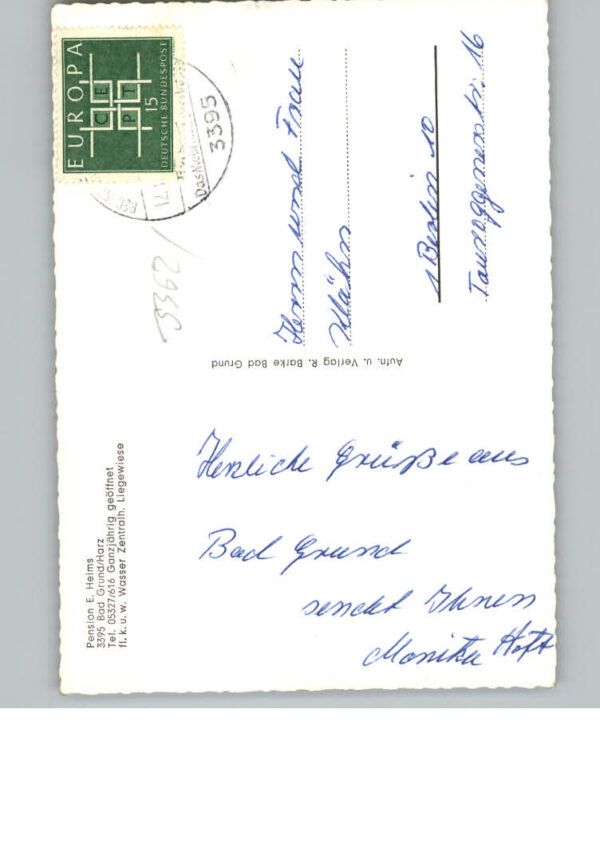 Pension E. Helms
3395 Bad Grund/Harz
Tel. 05327/616 Ganzjährig geöffnet
fl. k. u. w. Wasser Zentralh. Liegewiese
Herzliche Grüße aus
Bad Grund
sendet Ihnen
Monika Hoft
Aufn. u. Verlag R. Barke Bad Grund
EUROPA
CEPT
15
DEUTSCHE BUNDESPOST
3395
5362/
Herrn und Frau
Klähn
1 Berlin 10
Tauroggenerstr. 16